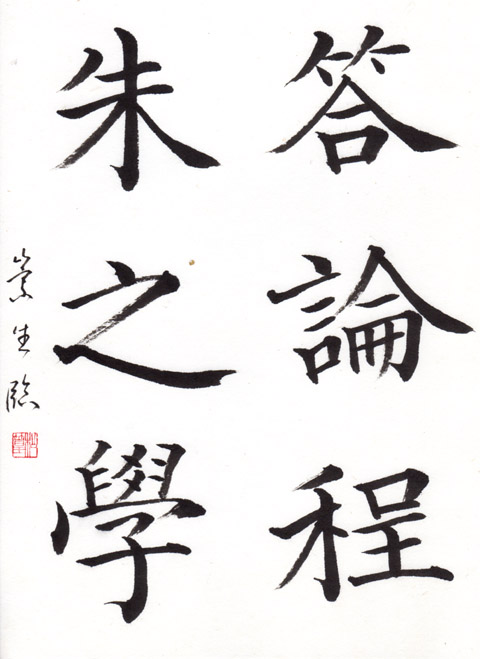 答論程
朱之學
生臨